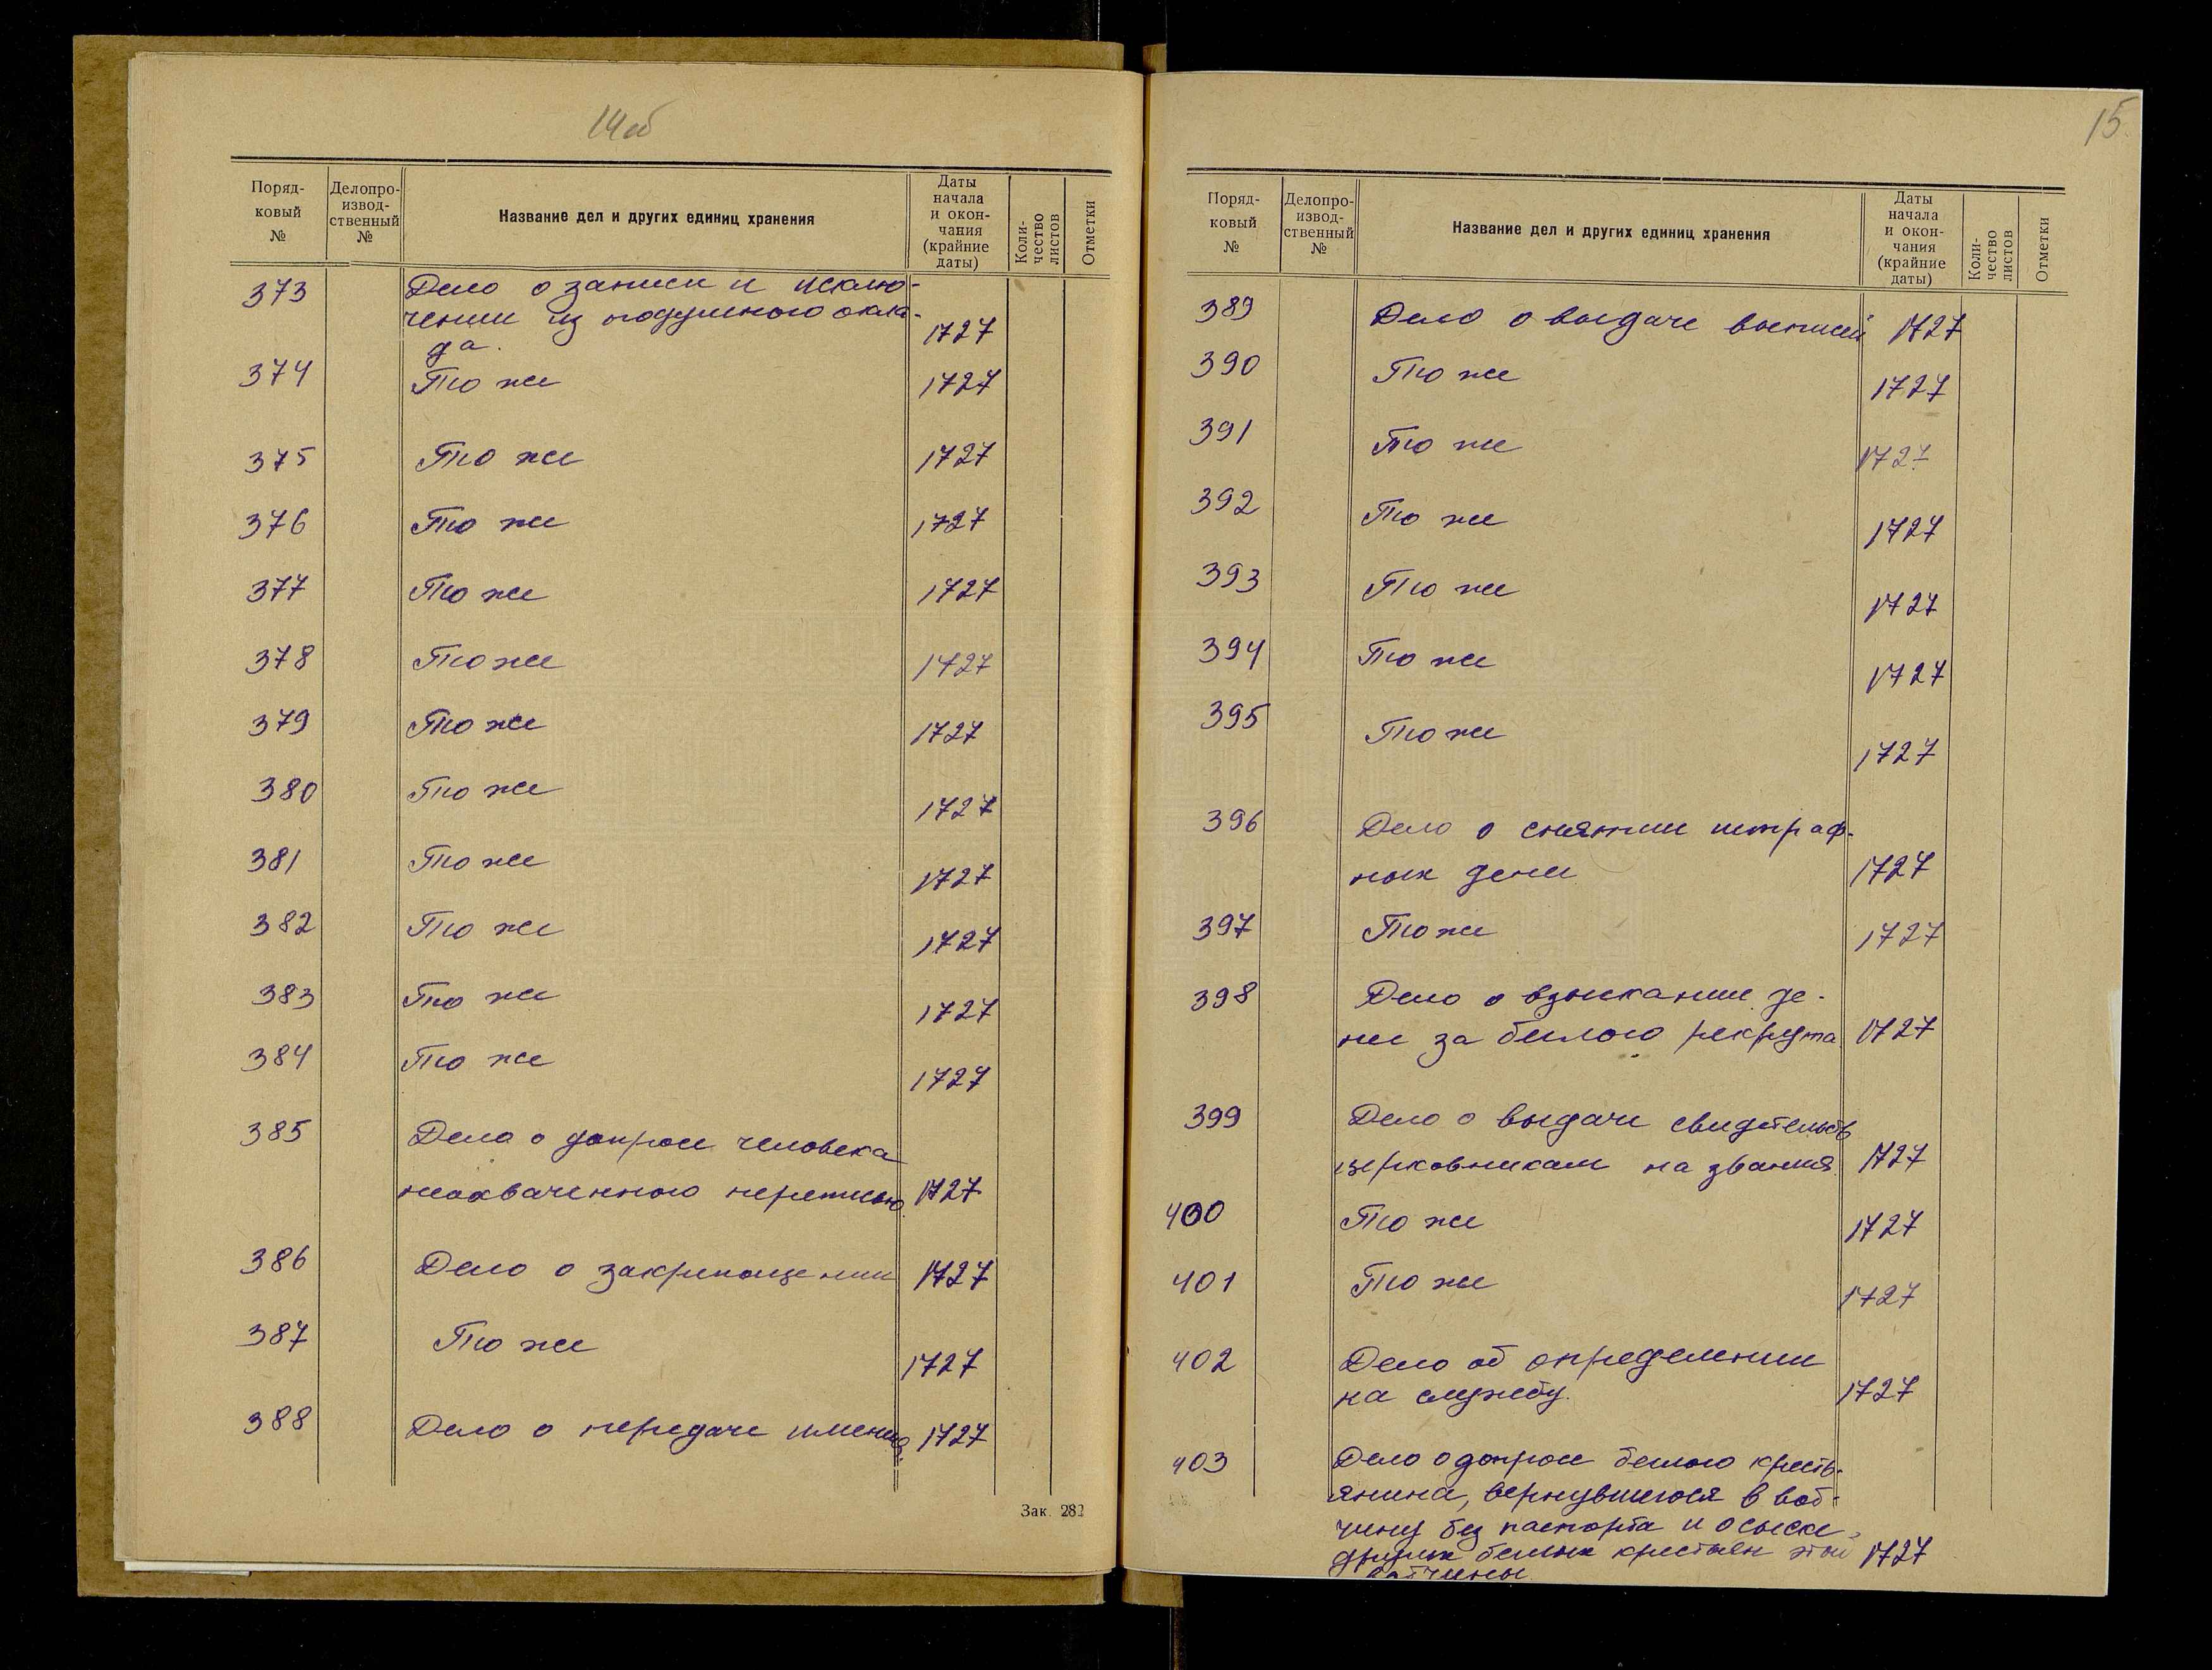 14об
Поряд-
ковый
№
Делопро-
извод-
ственный
№
Название дел и других единиц хранения
Даты
начала
и окон-
чания
(крайние
даты)
Коли-
чество
листов
Отметки
373 Дело о записи и исклю-
чении из подушного окла-
да. 1727
374 То же 1727
375 То же 1727
376 То же 1727
377 То же 1727
378 То же 1727
379 То же 1727
380 То же 1727
381 То же 1727
382 То же 1727
383 То же 1727
384 То же 1727
385 Дело о допросе человека
неохваченного переписью. 1727
386 Дело о закрепощении 1727
387 То же 1727
388 Дело о передаче имения. 1727
Зак. 282
15
Поряд-
ковый
№
Делопро-
извод-
ственный
№
Название дел и других единиц хранения
Даты
начала
и окон-
чания
(крайние
даты)
Коли-
чество
листов
Отметки
389 Дело о выдаче выписей 1727
390 То же 1727
391 То же 1727
392 То же 1727
393 То же 1727
394 То же 1727
395 То же 1727
396 Дело о снятии штраф-
ных денег 1727
397 То же 1727
398 Дело о взыскании де-
нег за беглого рекрута 1727
399 Дело о выдаче свидетельств
церковникам на звания. 1727
400 То же 1727
401 То же 1727
402 Дело об определении
на службу. 1727
403 Дело о допросе беглого кресть-
янина, вернувшегося в вот-
чину без паспорта и о сыске
других беглых крестьян этой 1727
вотчины